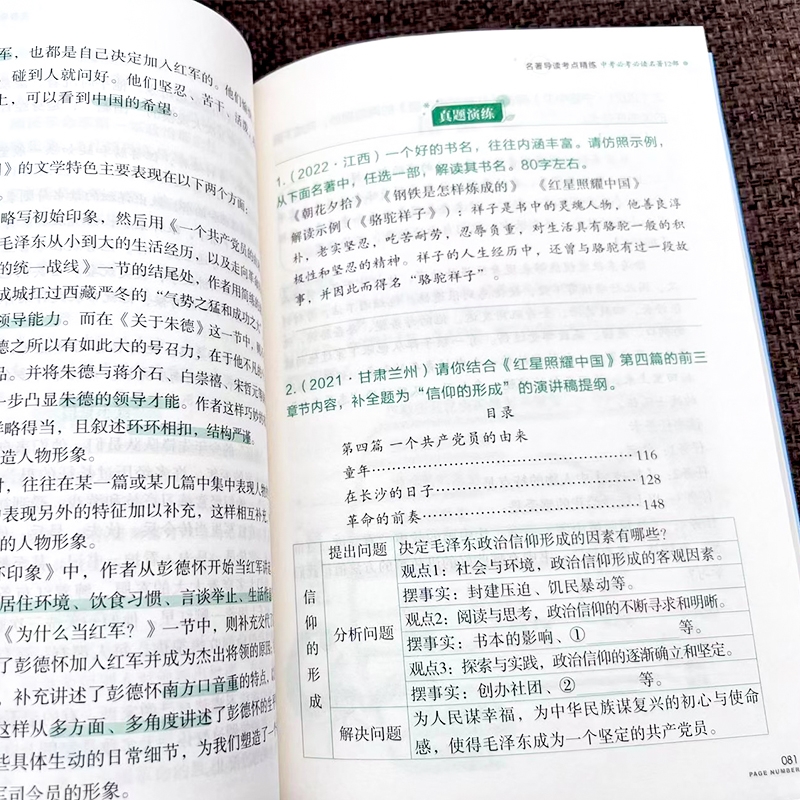 军，也都是自己决定加入红军的。他们
碰到人就问好。他们坚忍、苦干、活泼
上，可以看到中国的希望。
》的文学特色主要表现在以下两个方面：
略写初始印象，然后用《一个共产党员的
毛泽东从小到大的生活经历，以及走向革命
的统一战线》一节的结尾处，作者用简练的
成城扛过西藏严冬的“气势之猛和成功之大
领导能力。而在《关于朱德》这一节中，
德之所以有如此大的号召力，在于他不凡的
品。并将朱德与蒋介石、白崇禧、宋哲元等
一步凸显朱德的领导才能。作者这样巧妙的
详略得当，且叙述环环相扣，结构严谨。
造人物形象。
时，往往在某一篇或某几篇中集中表现人物
表现另外的特征加以补充，这样相互补充，
的人物形象。
印象》中，作者从彭德怀开始当红军讲起
居住环境、饮食习惯、言谈举止、生活作
《为什么当红军？》一节中，则补充交代了
了彭德怀加入红军并成为杰出将领的原因；
，补充讲述了彭德怀南方口音重的特点，
这样从多方面、多角度讲述了彭德怀的生平
些具体生动的日常细节，为我们塑造了一个
军司令员的形象。
名著导读考点精练 中考必考必读名著12部
真题演练
1.（2022·江西）一个好的书名，往往内涵丰富。请仿照示例，
从下面名著中，任选一部，解读其书名。80字左右。
《朝花夕拾》 《钢铁是怎样炼成的》 《红星照耀中国》
解读示例（《骆驼祥子》）：祥子是书中的灵魂人物，他善良淳
朴，老实坚忍，吃苦耐劳，忍辱负重，对生活具有骆驼一般的积
极性和坚忍的精神。祥子的人生经历中，还曾与骆驼有过一段故
事，并因此而得名“骆驼祥子”。
2.（2021·甘肃兰州）请你结合《红星照耀中国》第四篇的前三
章节内容，补全题为“信仰的形成”的演讲稿提纲。
目录
第四篇 一个共产党员的由来
童年……………………………………116
在长沙的日子…………………………128
革命的前奏……………………………148
信仰的形成
提出问题 决定毛泽东政治信仰形成的因素有哪些?
分析问题 观点1：社会与环境，政治信仰形成的客观因素。
摆事实：封建压迫、饥民暴动等。
观点2：阅读与思考，政治信仰的不断寻求和明晰。
摆事实：书本的影响、① 等。
观点3：探索与实践，政治信仰的逐渐确立和坚定。
摆事实：创办社团、② 等。
解决问题 为人民谋幸福，为中华民族谋复兴的初心与使命
感，使得毛泽东成为一个坚定的共产党员。
081
PAGE NUMBER